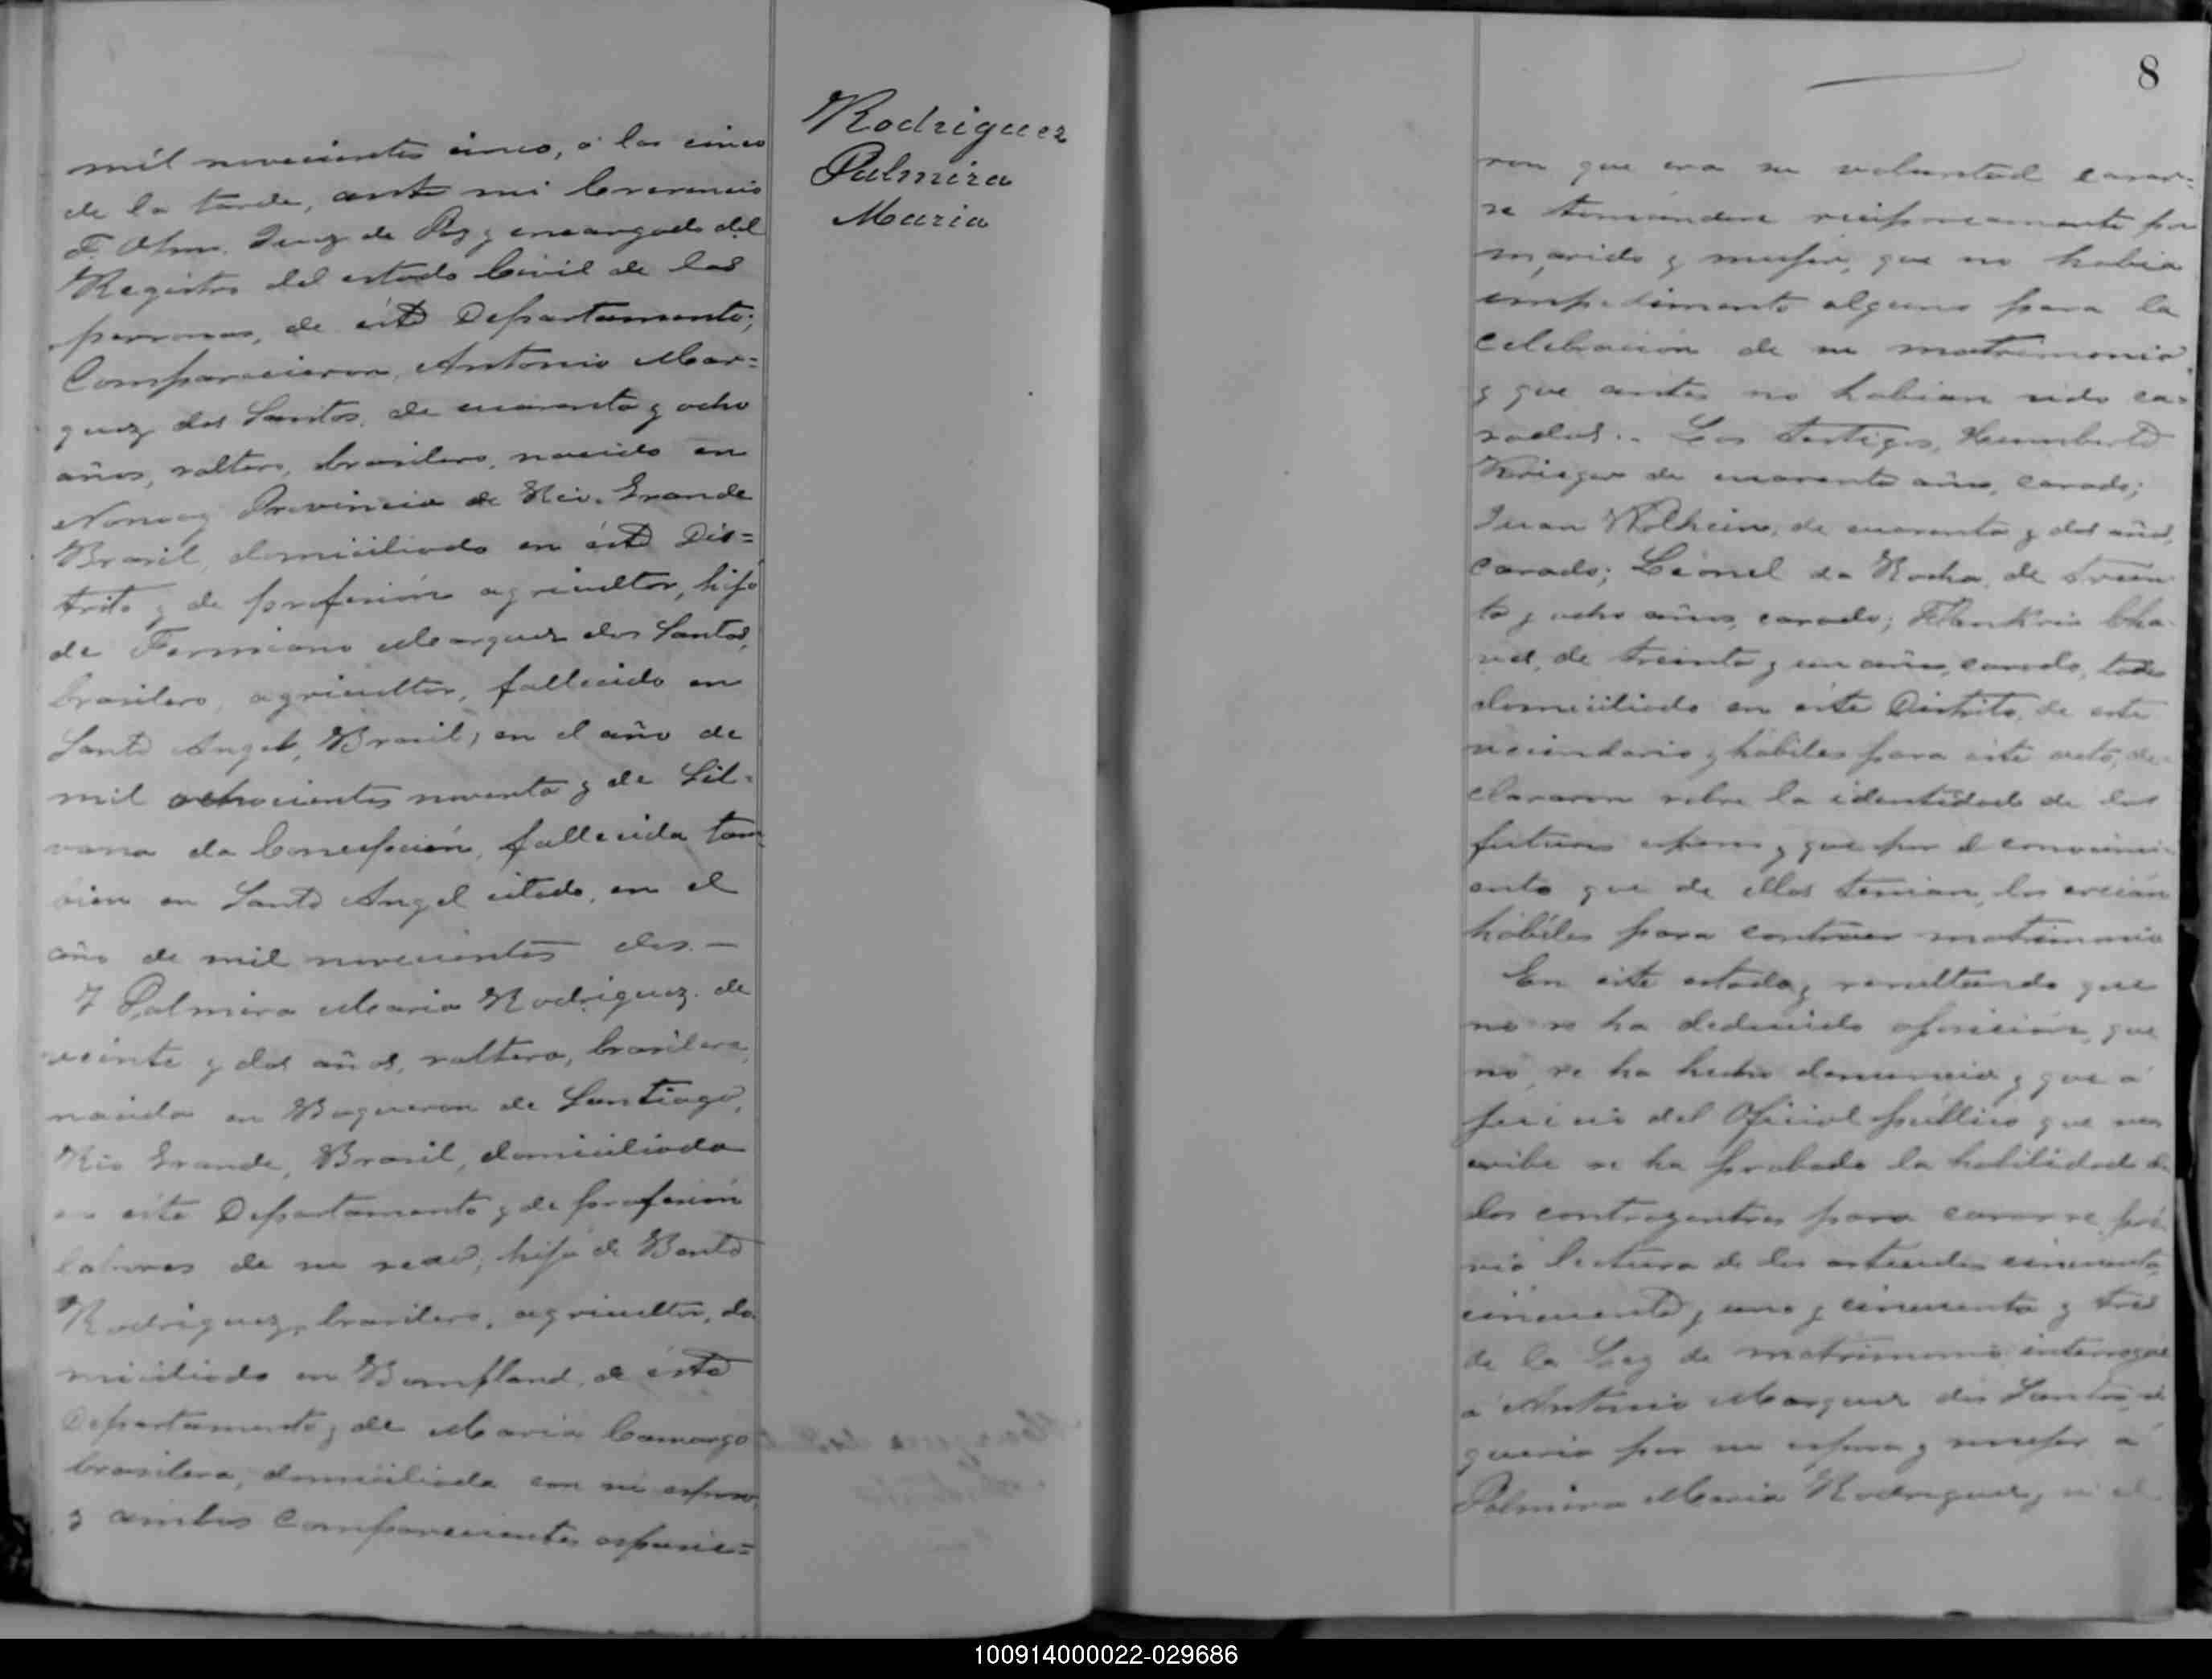 mil novecientos cinco, á las cinco
de la tarde, ante mi Cresencio
F. Juez de Paz y encargado del
Registro del estado Civil de las
personas, de éste Departamento;
Comparecieron, Antonio Mar=
quez dos Santos, de cuarenta y ocho
años, soltero, brasilero, nacido en
Nonoay Provincia de Rio Grande
Brasil, domiciliado en éste Dis=
trito y de profesión agricultor, hijo
de Firmiano Marquez dos Santos,
brasilero, agricultor, fallecido en
Santo Angel, Brasil, en el año de
mil ochocientos noventa y de Sil-
vana da Concepción, fallecida tam
bien en Santo Angel citado, en el
año de mil novecientos dos.-
Y Palmira Maria Rodriguez de
veinte y dos años, soltera, brasilera,
nacida en Boqueron de Santiago,
Rio Grande, Brasil, domiciliada
en éste Departamento y de profesión
labores de su sexo; hija de Bento
Rodriguez, brasilero, agricultor, do
miciliado en Bompland, de éste
Departamento y de Maria Camargo
brasilera, domiciliada con su esposo
y ambos Comparecientes espusie=
Rodriguez
Palmira
Maria
8
ron que era su voluntad casar=
se tomandose reciprocamente por
marido y mujer, que no habia
impedimento alguno para la
celebración de su matrimonio
y que antes no habian sido ca=
sados.- Los testigos, Humberto
Krieger de cuarenta años, casado;
Juan de cuarenta y dos años,
casado; Leonel da Rocha, de trein
ta y ocho años, casado; Cha
ves, de treinta y un años, casado, todos
domiciliado en éste Distrito, de este
vecindario y hábiles para éste acto, de=
clararon sobre la identidad de los
futuros esposos y que por el conocimi
ento que de ellos tenian, los creian
hábiles para contraer matrimonio
En éste estado y resultando que
no se ha deducido oposición, que
no se ha hecho denuncia y que á
juicio del Oficial público que sus
cribe se ha probado la habilidad de
los contrayentes para casarse, pré
via lectura de los articulos cincuenta,
cincuenta y uno y cincuenta y tres
de la Ley de matrimonio interrogué
á Antonio Marquez dos Santos, si
queria por su esposa y mujer á
Palmira Maria Rodriguez, si el
100914000022-029686